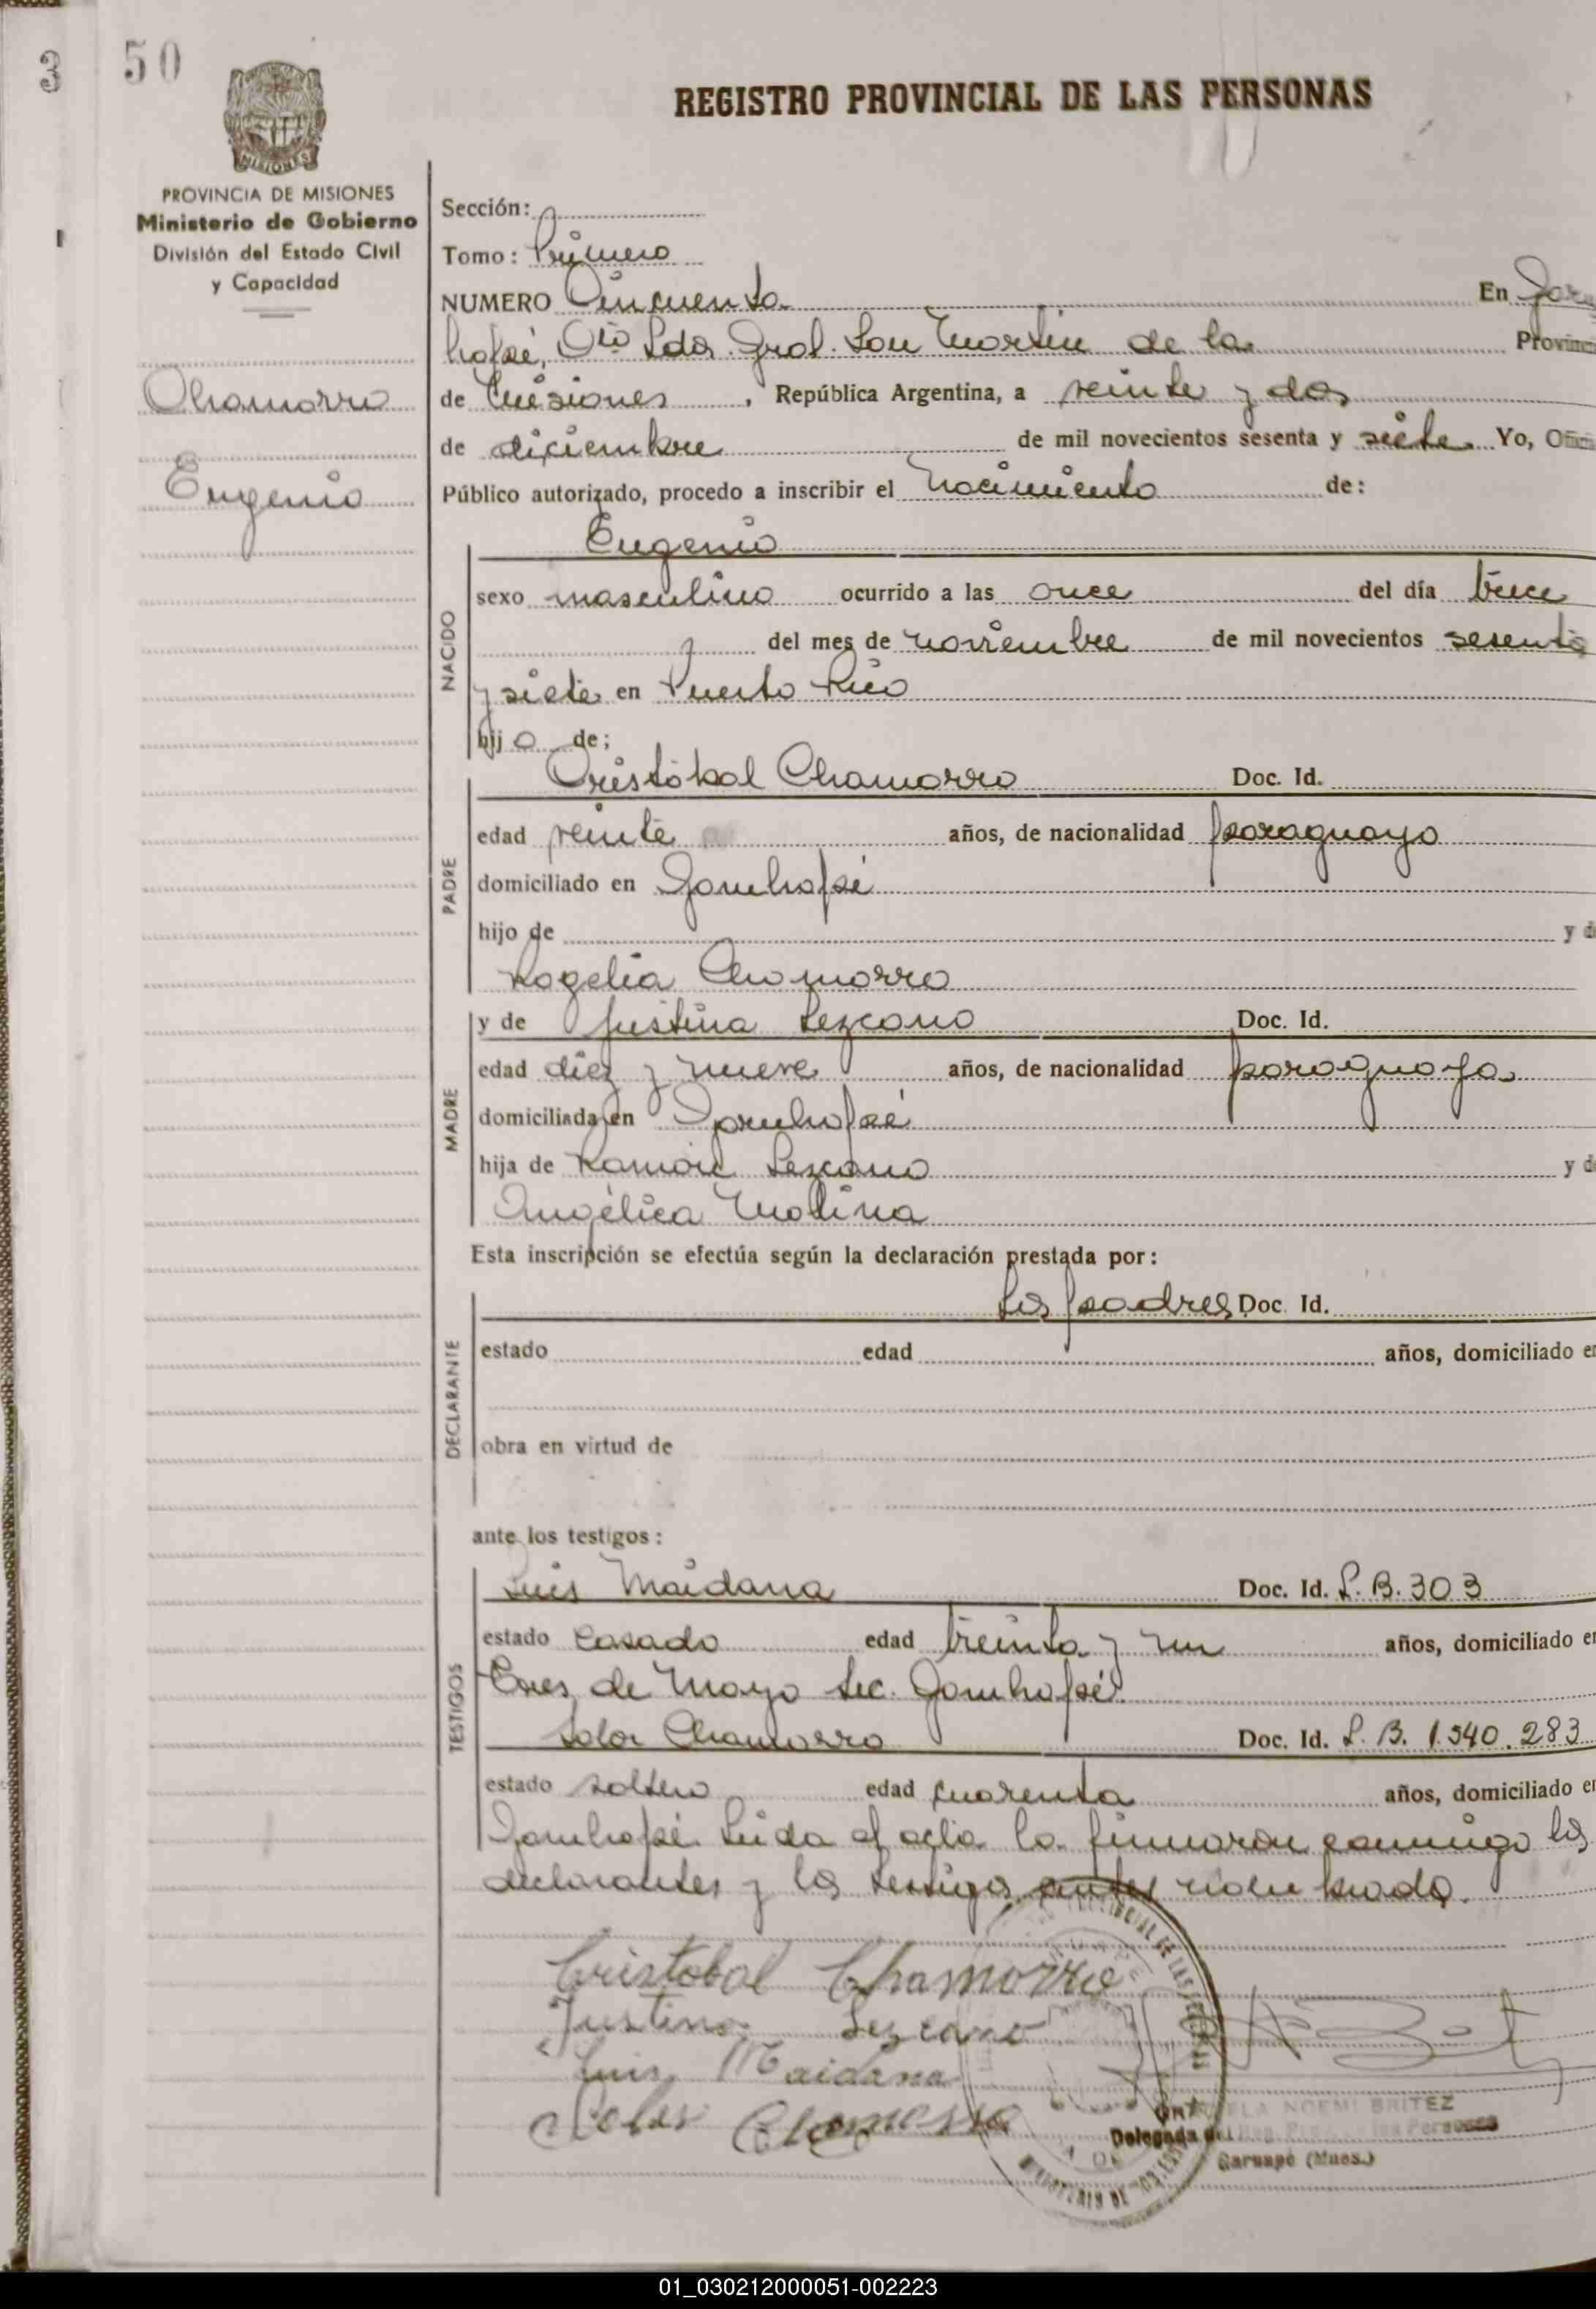 3
50
REGISTRO PROVINCIAL DE LAS PERSONAS
MISIONES
PROVINCIA DE MISIONES
Ministerio de Gobierno
División del Estado Civil
y Capacidad
Chamorro
Eugenio
Sección:
Tomo: Primero
NUMERO Cincuenta En
Dto Ldor. Gral. San Martín de la Provinci
de Misiones, República Argentina, a veinte y dos
de diciembre de mil novecientos sesenta y siete Yo, Ofici
Público autorizado, procedo a inscribir el Nacimiento de:
NACIDO
Eugenio
sexo masculino ocurrido a las once del día trece
del mes de noviembre de mil novecientos sesenta
y siete en Puerto Rico
hijo de;
PADRE
Cristóbal Chamorro Doc. Id.
edad veinte años, de nacionalidad paraguayo
domiciliado en Garuhapé
hijo de y d
Rogelia Chamorro
MADRE
y de Justina Lezcano Doc. Id.
edad diez y nueve años, de nacionalidad paraguaya
domiciliada en Garuhapé
hija de Ramón Lezcano y d
Angélica Molina
Esta inscripción se efectúa según la declaración prestada por:
DECLARANTE
los padres Doc. Id.
estado edad años, domiciliado en
obra en virtud de
ante los testigos:
TESTIGOS
Luis Maidana Doc. Id. L.B. 303
estado casado edad treinta y un años, domiciliado en
Tres de Mayo Sec. Garuhapé
Chamorro Doc. Id. L. B. 1.540.283
estado soltero edad cuarenta años, domiciliado en
Garuhapé. Leída el acta la firmaron conmigo los
declarantes y los testigos antes nombrado.
Cristobal Chamorro
Justina Lezcano
Luis Maidana
Chamorro
NOEMI BRITEZ
Delegada del Reg. Prov. de las Personas
Garuapé (Mnes.)
01_030212000051-002223